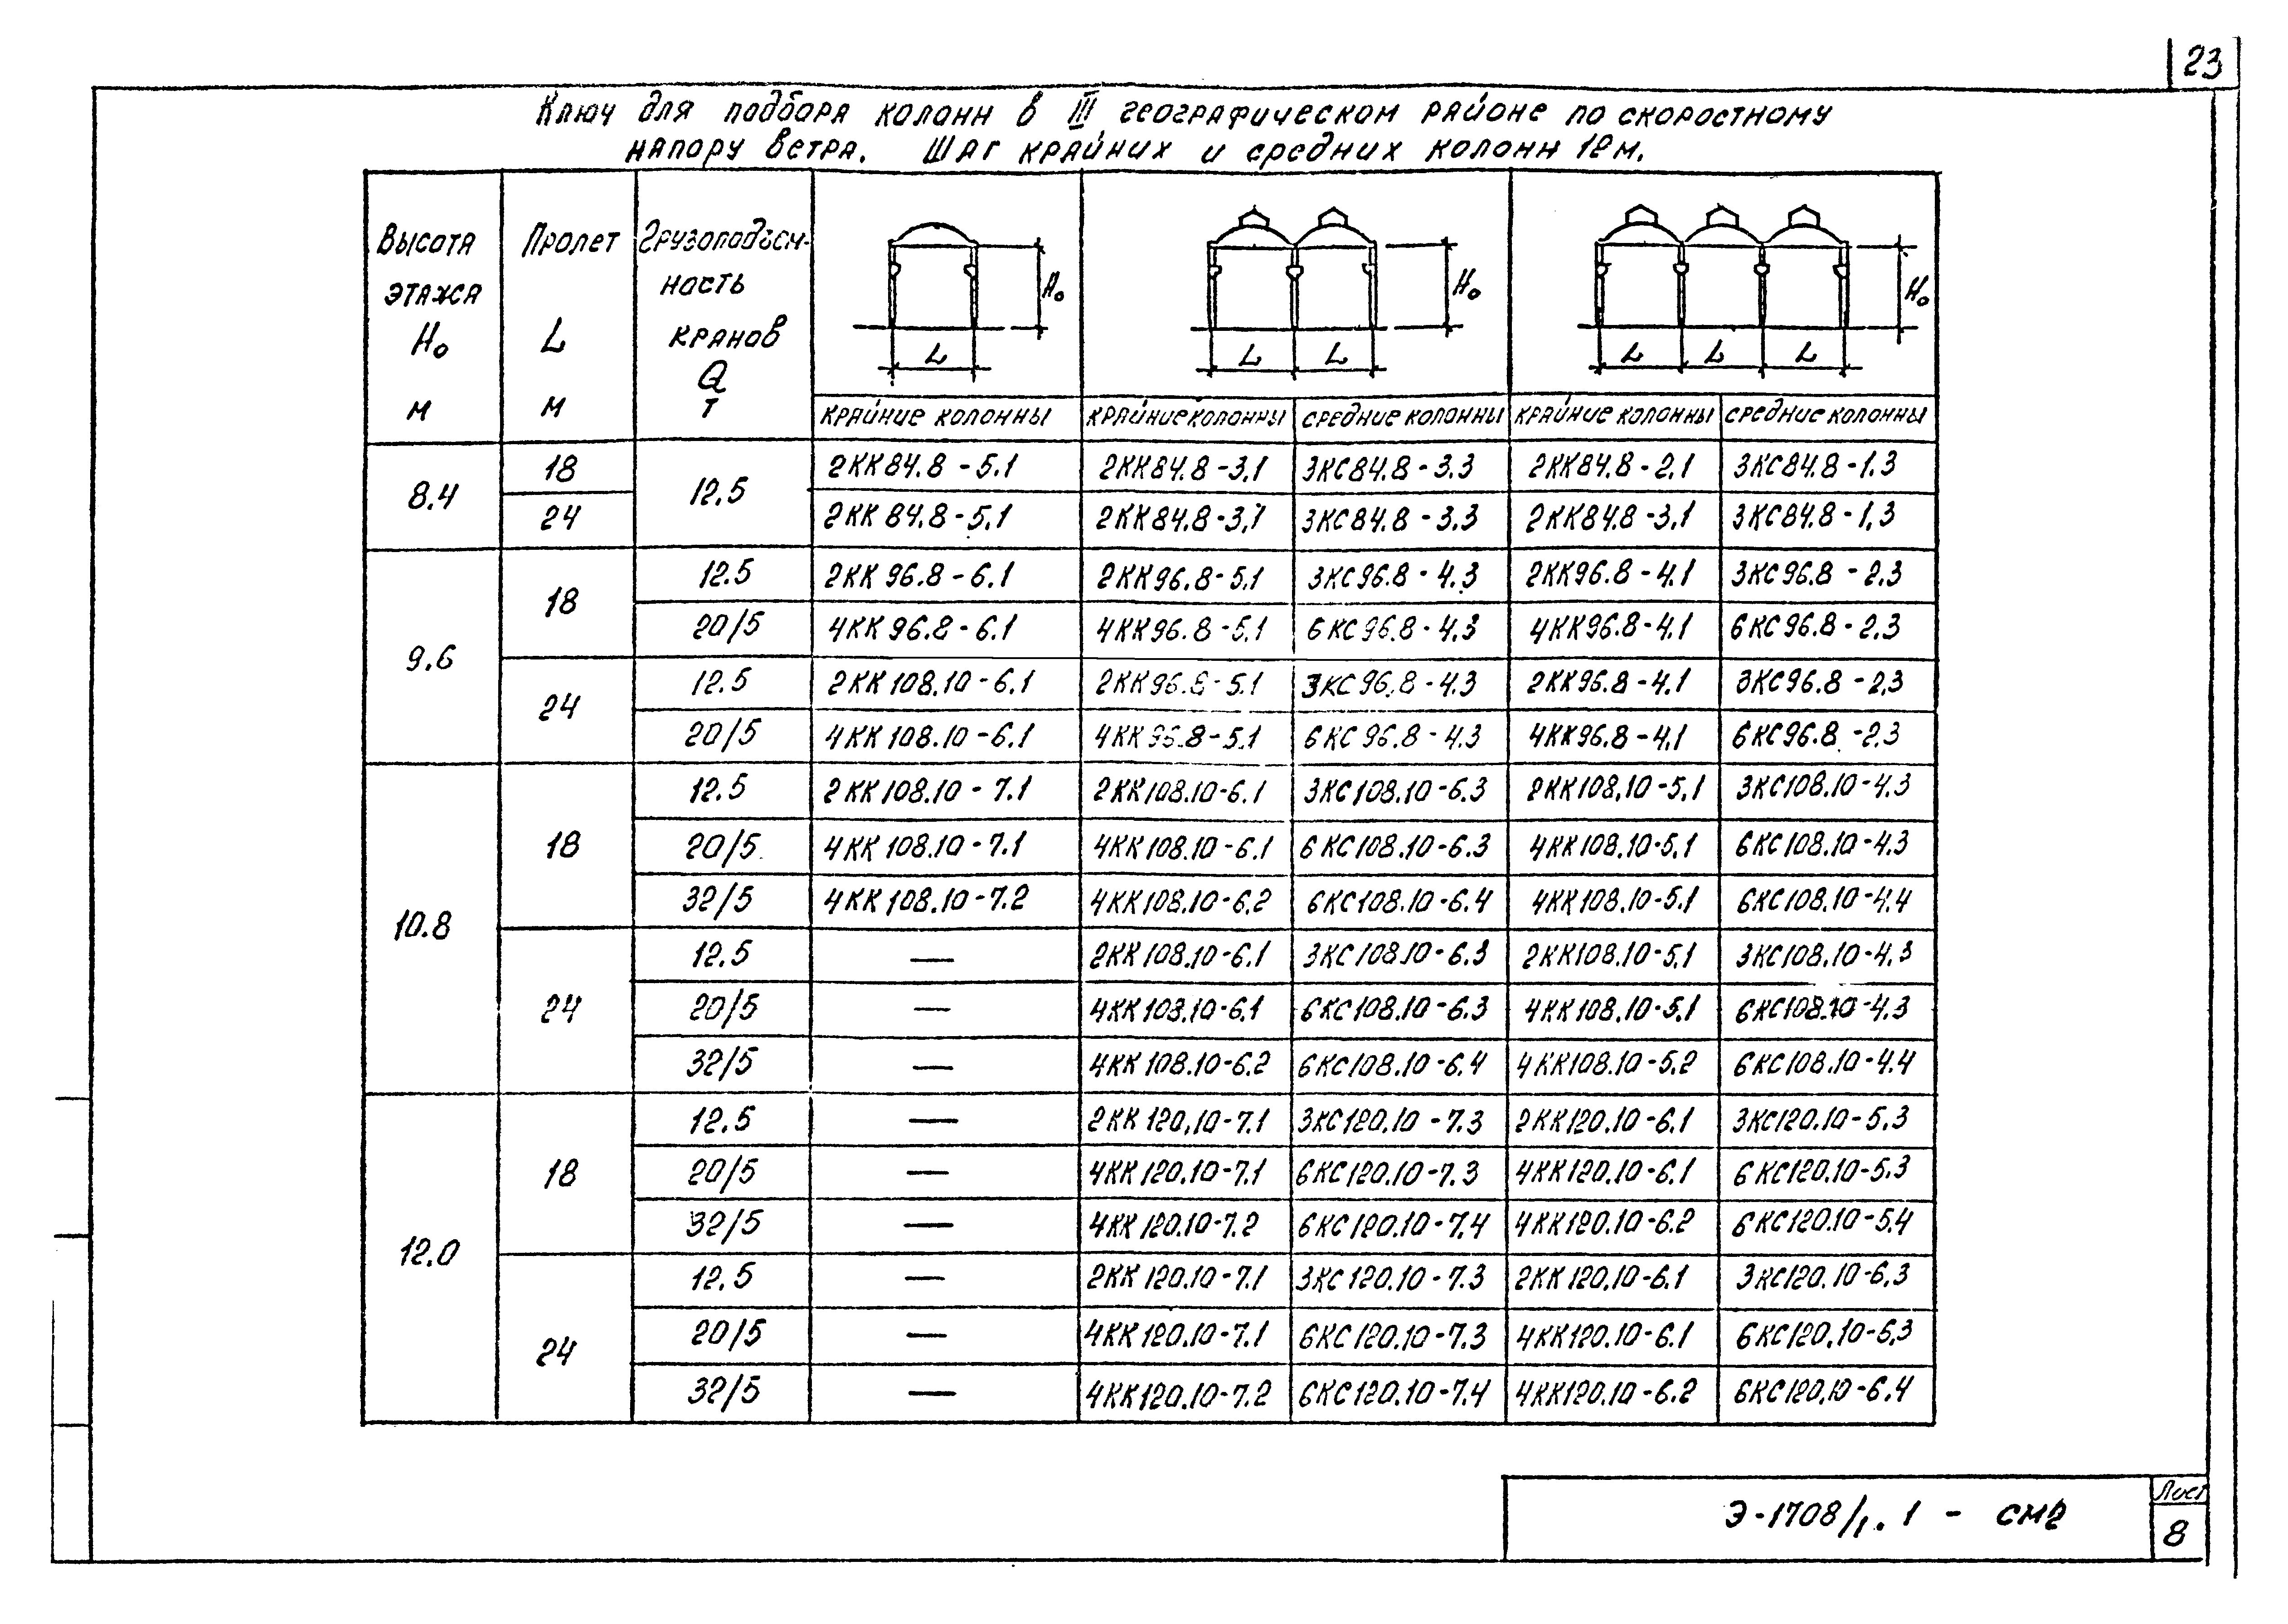 23
Ключ для подбора колонн в III географическом районе по скоростному
напору ветра. Шаг крайних и средних колонн 12м.
Высота этажа H₀ м
Пролет L м
Грузоподъем-ность кранов Q т
H₀
L
H₀
L L
H₀
L L L
крайние колонны крайние колонны средние колонны крайние колонны средние колонны
8.4 18 12.5 2КК84.8-5.1 2КК84.8-3.1 3КС84.8-3.3 2КК84.8-2.1 3КС84.8-1.3
24 2КК84.8-5.1 2КК84.8-3.1 3КС84.8-3.3 2КК84.8-3.1 3КС84.8-1.3
9.6 18 12.5 2КК96.8-6.1 2КК96.8-5.1 3КС96.8-4.3 2КК96.8-4.1 3КС96.8-2.3
20/5 4КК96.8-6.1 4КК96.8-5.1 6КС96.8-4.3 4КК96.8-4.1 6КС96.8-2.3
24 12.5 2КК108.10-6.1 2КК96.8-5.1 3КС96.8-4.3 2КК96.8-4.1 3КС96.8-2.3
20/5 4КК108.10-6.1 4КК96.8-5.1 6КС96.8-4.3 4КК96.8-4.1 6КС96.8-2.3
10.8 18 12.5 2КК108.10-7.1 2КК108.10-6.1 3КС108.10-6.3 2КК108.10-5.1 3КС108.10-4.3
20/5 4КК108.10-7.1 4КК108.10-6.1 6КС108.10-6.3 4КК108.10-5.1 6КС108.10-4.3
32/5 4КК108.10-7.2 4КК108.10-6.2 6КС108.10-6.4 4КК108.10-5.1 6КС108.10-4.4
24 12.5 — 2КК108.10-6.1 3КС108.10-6.3 2КК108.10-5.1 3КС108.10-4.3
20/5 — 4КК108.10-6.1 6КС108.10-6.3 4КК108.10-5.1 6КС108.10-4.3
32/5 — 4КК108.10-6.2 6КС108.10-6.4 4КК108.10-5.2 6КС108.10-4.4
12.0 18 12.5 — 2КК120.10-7.1 3КС120.10-7.3 2КК120.10-6.1 3КС120.10-5.3
20/5 — 4КК120.10-7.1 6КС120.10-7.3 4КК120.10-6.1 6КС120.10-5.3
32/5 — 4КК120.10-7.2 6КС120.10-7.4 4КК120.10-6.2 6КС120.10-5.4
24 12.5 — 2КК120.10-7.1 3КС120.10-7.3 2КК120.10-6.1 3КС120.10-6.3
20/5 — 4КК120.10-7.1 6КС120.10-7.3 4КК120.10-6.1 6КС120.10-6.3
32/5 — 4КК120.10-7.2 6КС120.10-7.4 4КК120.10-6.2 6КС120.10-6.4
Э-1708/1.1 - СМ2
Лист
8